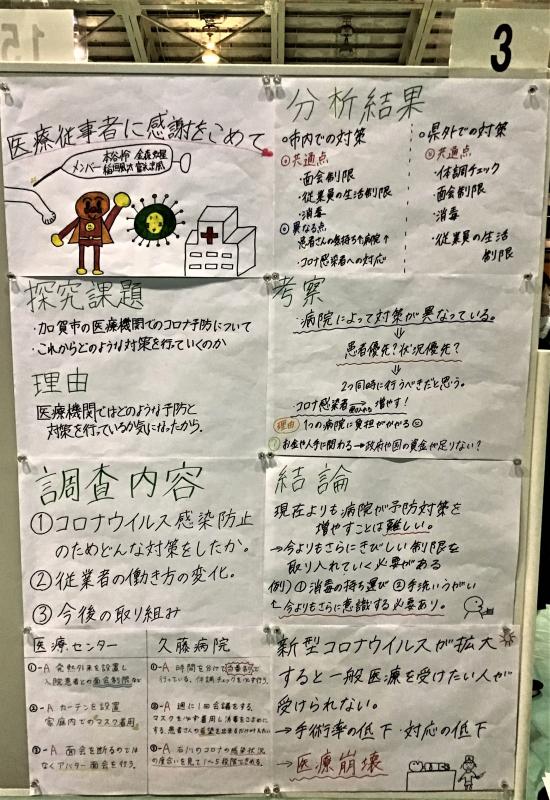 3
医療従事者に感謝をこめて
メンバー
探究課題
・加賀市の医療機関でのコロナ予防について
・これからどのような対策を行っていくのか
理由
医療機関ではどのような予防と
対策を行っているか気になったから。
調査内容
①コロナウイルス感染防止
のためどんな対策をしたか。
②従業者の働き方の変化。
③今後の取り組み
医療センター
①-A 発熱外来を設置し
入院患者との面会制限など
②-A カーテンを設置
家庭内でのマスク着用
③-A 面会を断るのでは
なくアバター面会を行う。
久藤病院
①-A 時間を分けて
行っている。体調チェックを必ず行う。
②-A 週に1回会議をする。
マスクを必ず着用し消毒をこまめに
する。患者さんの
③-A 石川のコロナの感染状況
の度合いを見て1〜5段階で決める。
分析結果
○市内での対策
共通点
・面会制限
・従業員の生活制限
・消毒
異なる点
患者さんの気持ち↑病院↑
・コロナ感染者への対応
○県外での対策
共通点
・体調チェック
・面会制限
・消毒
・従業員の生活
制限
考察
・病院によって対策が異なっている。
⇓
患者優先?状況優先?
⇓
2つ同時に行うべきだと思う。
コロナ感染者 増やす!
理由 1つの病院に負担がかかる
お金や人手に関わる→政府や国の資金が足りない?
結論
現在よりも病院が予防対策を
増やすことは難しい。
→今よりもさらにきびしい制限を
取り入れていく必要がある
例)①消毒の持ち運び ②手洗いうがい
←今よりもさらに意識する必要あり。
新型コロナウイルスが拡大
すると一般医療を受けたい人が
受けられない。
→手術率の低下・対応の低下
→医療崩壊